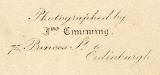 Photographed by
Jno Cumming.
72 Princes St
Edinburgh